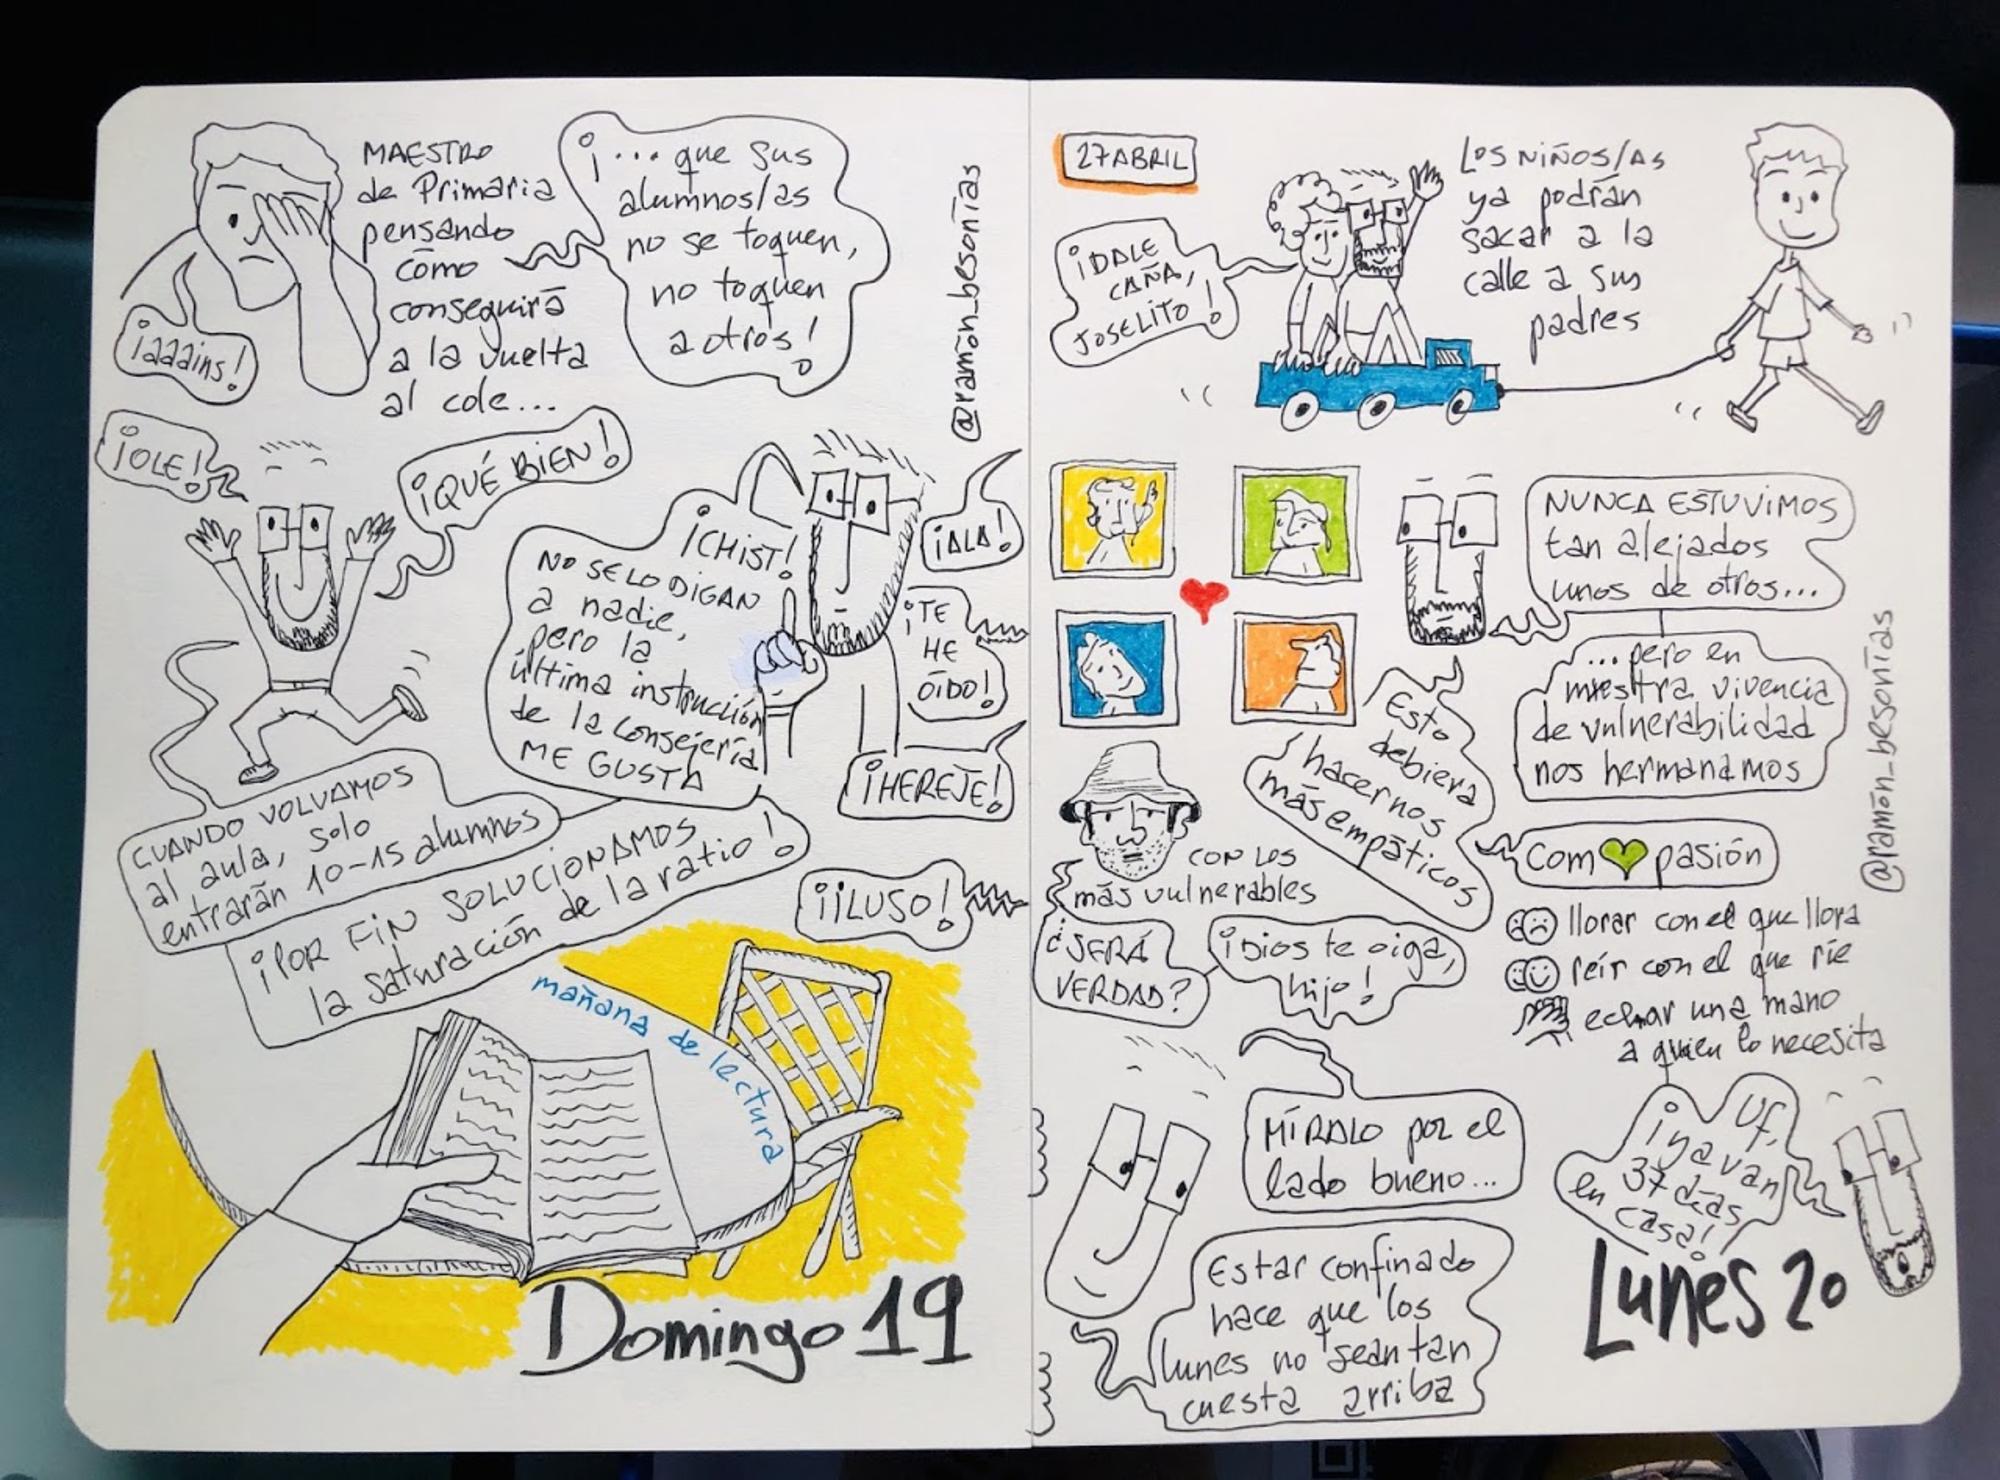 MAESTRO
de Primaria
pensando
cómo
conseguirá
a la vuelta
al cole...
¡... que sus
alumnos/as
no se toquen,
no toquen
a otros!
¡aaains!
@ramón_besonías
¡OLE!
¡QUÉ BIEN!
¡CHIST!
NO SE LO DIGAN
a nadie,
pero la
última instrucción
de la consejería
ME GUSTA
¡ALA!
¡TE
HE
OÍDO!
¡HEREJE!
CUANDO VOLVAMOS
al aula, solo
entrarán 10-15 alumnos
¡POR FIN SOLUCIONAMOS
la saturación de la ratio!
¡ILUSO!
mañana de lectura
Domingo 19
27 ABRIL
¡DALE
CAÑA,
JOSELITO!
LOS NIÑOS/AS
ya podrán
sacar a la
calle a sus
padres
NUNCA ESTUVIMOS
tan alejados
unos de otros...
...pero en
nuestra vivencia
de vulnerabilidad
nos hermanamos
@ramón_besonías
Esto
debiera
hacernos
más empáticos
CON LOS
más vulnerables
Com pasión
llorar con el que llora
reír con el que ríe
echar una mano
a quien lo necesita
¿SERÁ
VERDAD?
¡Dios te oiga,
hijo!
MÍRALO por el
lado bueno...
Estar confinado
hace que los
lunes no sean tan
cuesta arriba
Uf,
¡ya van
37 días
en casa!
Lunes 20